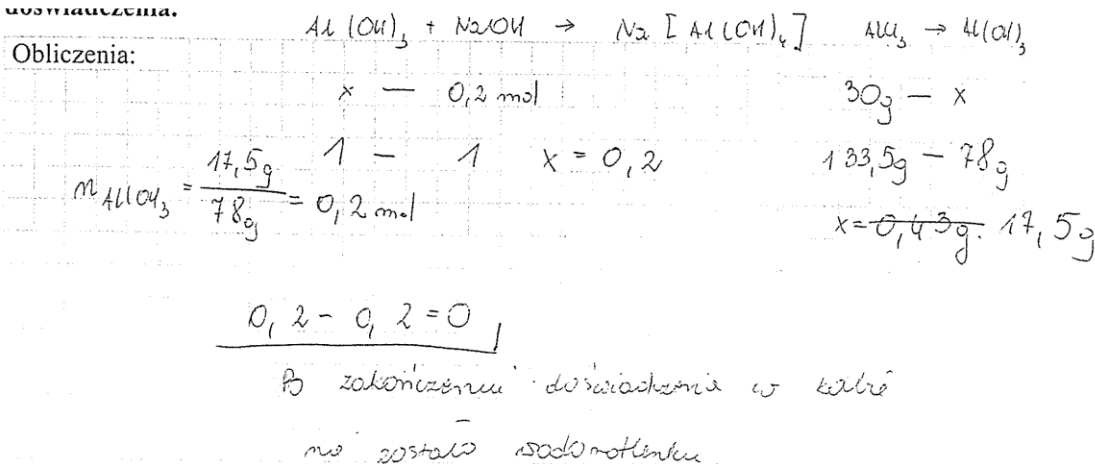 doświadczenia.
Al(OH)₃ + NaOH → Na[Al(OH)₄]   AlCl₃ → Al(OH)₃
Obliczenia:
x — 0,2 mol   30g — x
1 — 1   x = 0,2   133,5g — 78g
n Al(OH)₃ = 17,5g / 78g = 0,2 mol   x = ~~0,43g.~~ 17,5g
0,2 - 0,2 = 0
Po zakończeniu doświadczenia w kolbie
nie zostało wodorotlenku